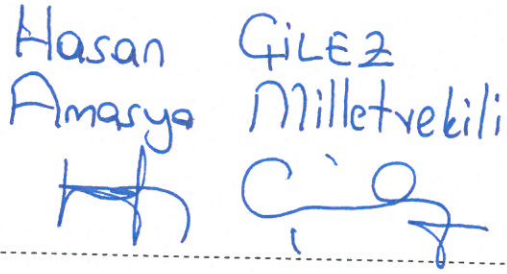 Hasan ÇiLEZ
Amasya Milletvekili